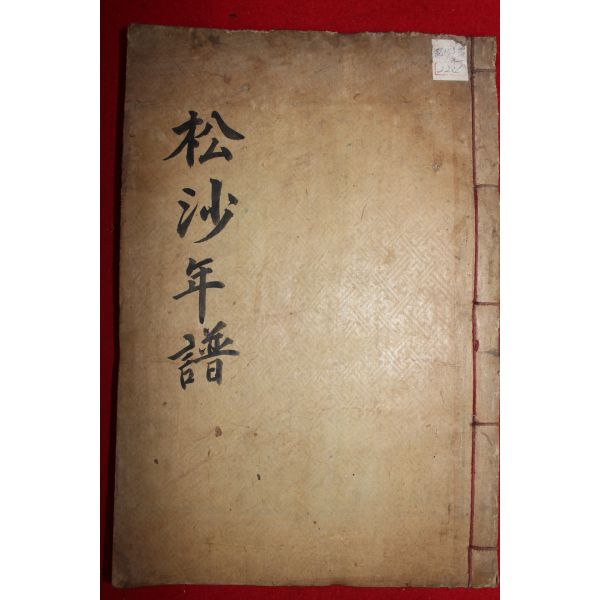 松沙年譜